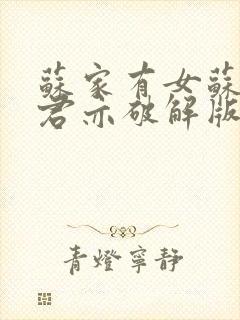 蘇家有女蘇
君亦破解版
青燈寧靜